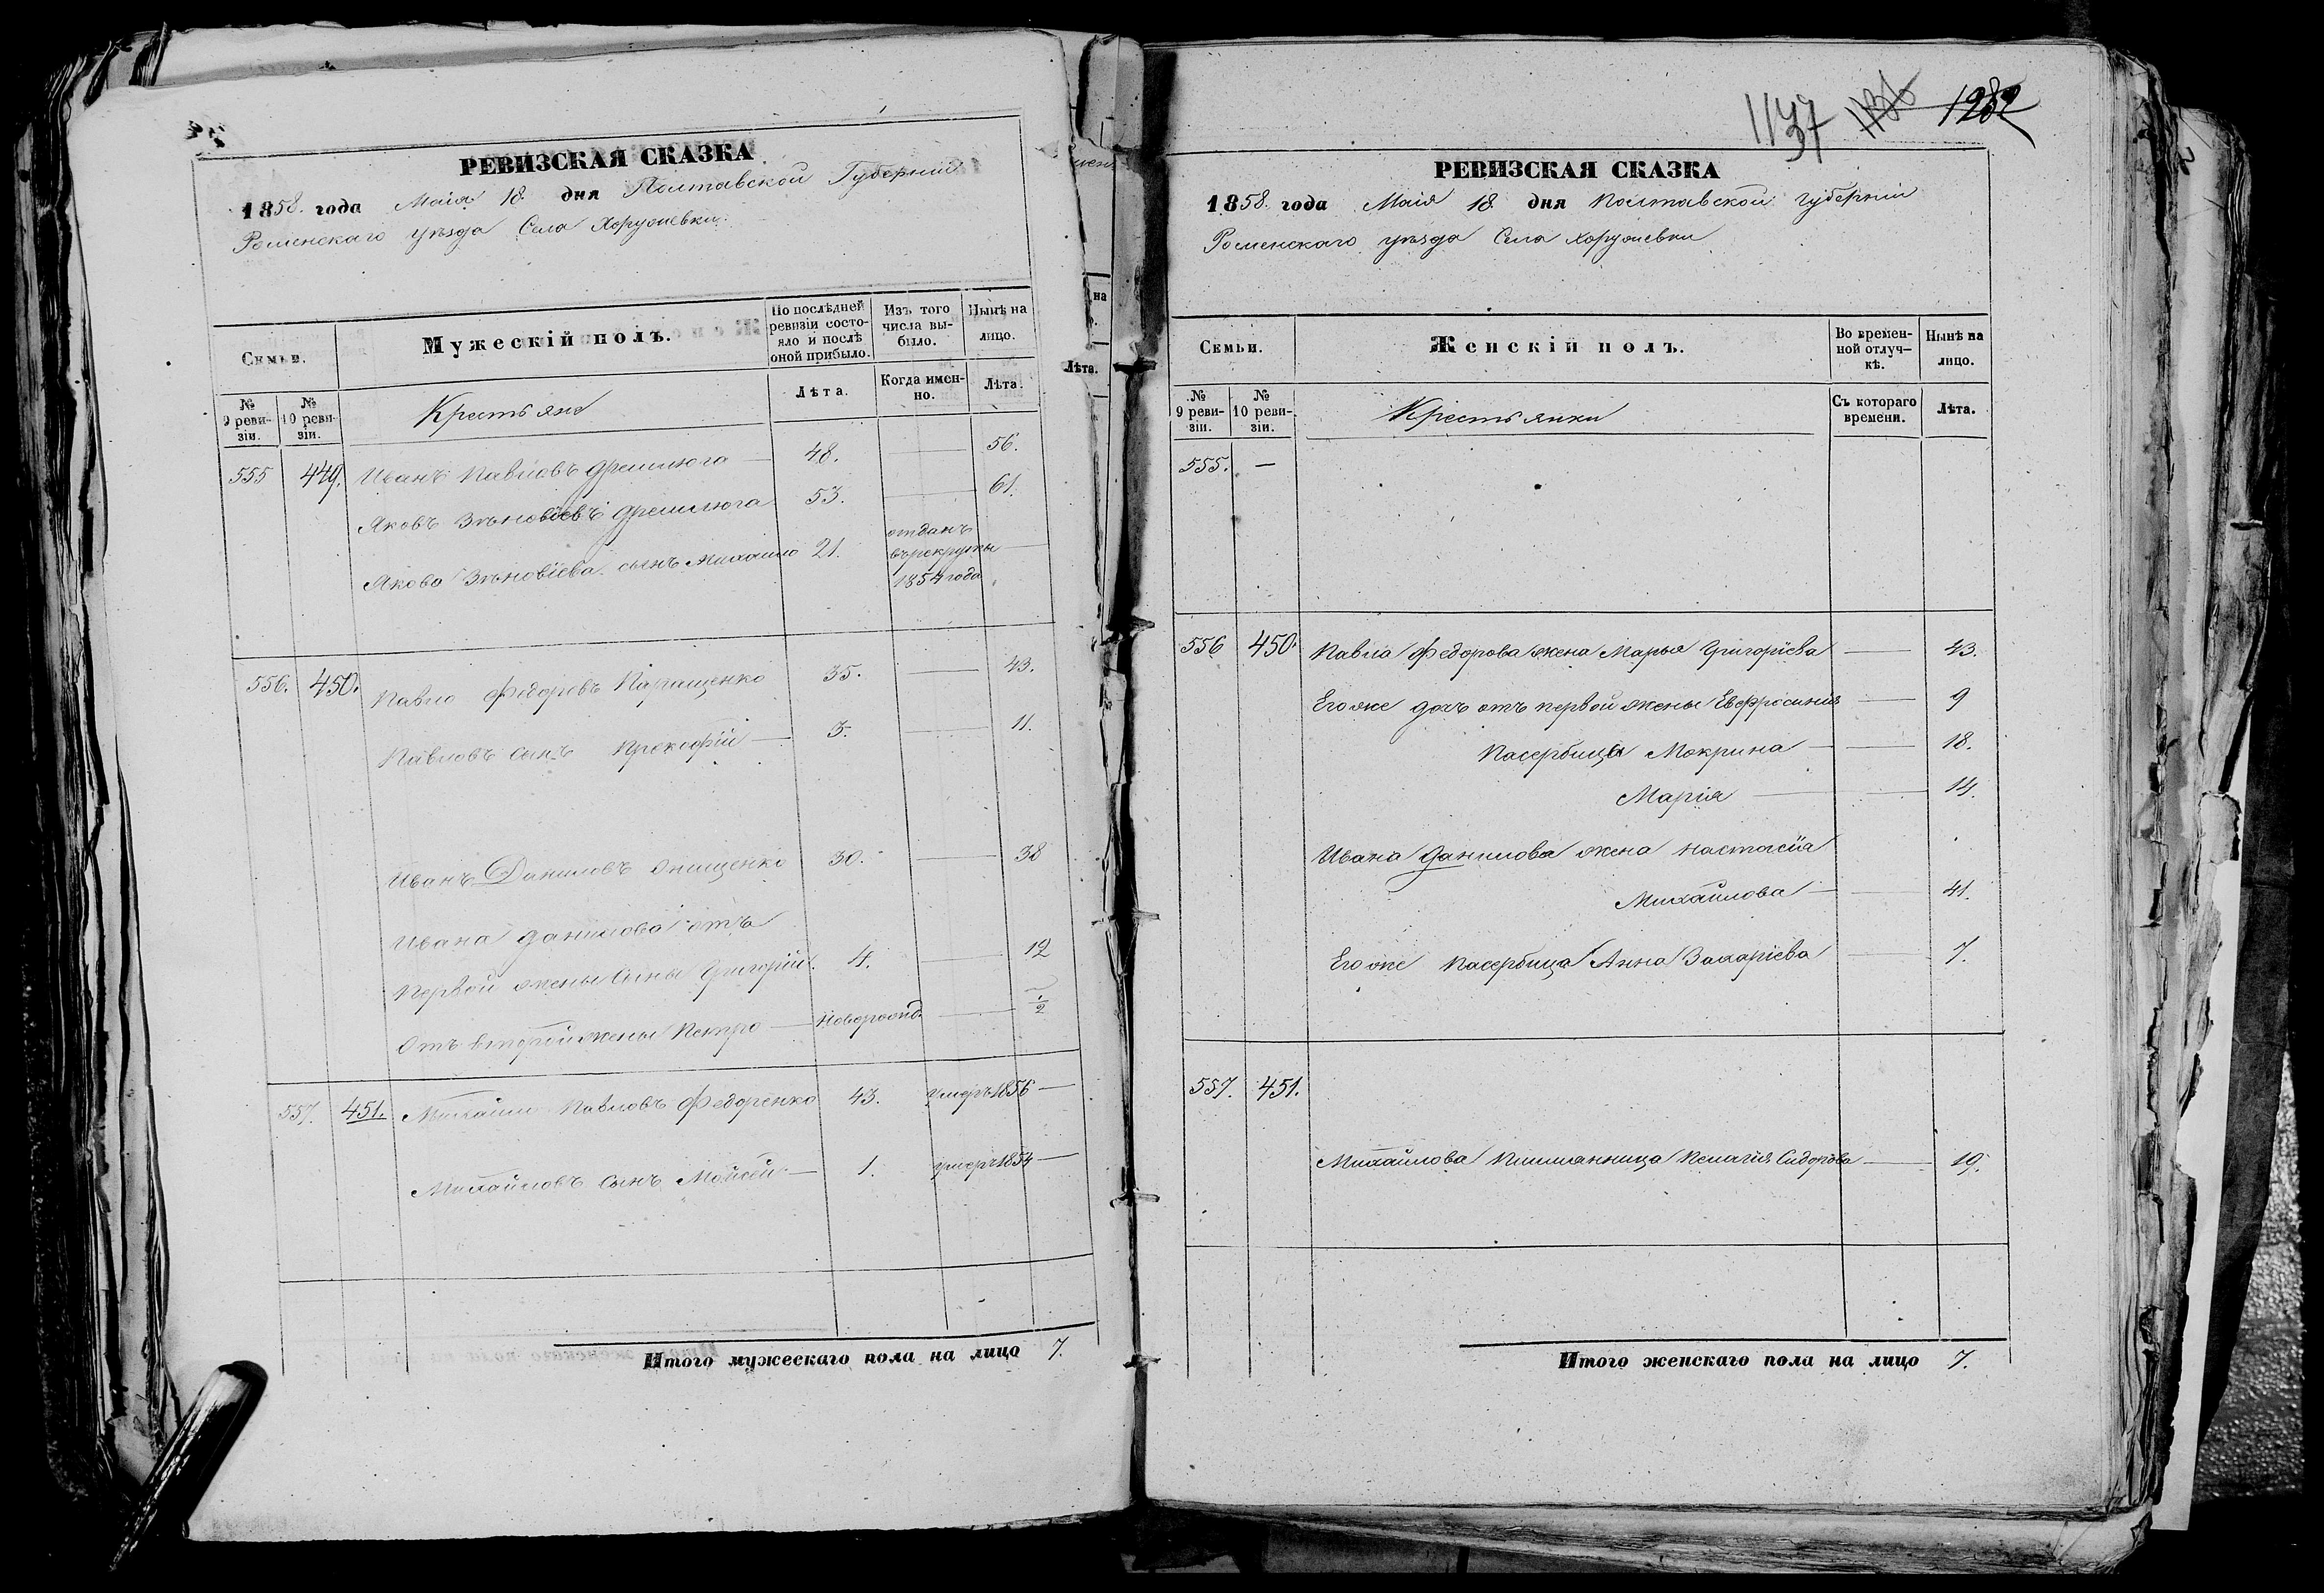 РЕВИЗСКАЯ СКАЗКА
1858. года Маія 18. дня Полтавской Губерніи
Роменскаго уѣзда Села Хоружевки.
Семьи.
Мужескій полъ.
По послѣдней ревизіи состояло и послѣ оной прибыло.
Изъ того числа выбыло.
Нынѣ на лицо.
№ 9 ревизіи.
№ 10 ревизіи.
Крестьяне
Лѣта.
Когда именно.
Лѣта.
555 449. Иванъ Павловъ Дремлюга 48. 56.
Яковъ Зѣновіевъ Дремлюга 53. 61.
Якова Зѣновіева сынъ Михайло 21. отданъ
въ рекруты
1854 года
556. 450. Павло Федоровъ 35. 43.
Павловъ сынъ Прокофій 3. 11.
Иванъ Даниловъ Онищенко 30. 38
Ивана Данилова отъ
первой жены сынъ Григорій. 4. 12
Отъ второй жены Петро Новорожд. ½
557. 451. Михайло Павловъ Федоренко 43. умеръ 1856
Михайловъ сынъ Мойсей 1. умеръ 1854
Итого мужескаго пола на лицо 7.
1137 1136 1282
РЕВИЗСКАЯ СКАЗКА
1858. года Маія 18. дня Полтавской Губерніи
Роменскаго уѣзда Села Хоружевки
Семьи.
Женскій полъ.
Во временной отлучкѣ.
Нынѣ на лицо.
№ 9 ревизіи.
№ 10 ревизіи.
Крестьянки
Съ котораго времени.
Лѣта.
555. —
556 450. Павла Федорова жена Марья Григоріева 43.
Его же дочь отъ первой жены Евфросинія 9
Пасербица Мокрина 18.
Марія 14.
Ивана Данилова жена Настасія
Михайлова 41.
Его же пасербица Анна Захаріева 7.
557. 451.
Михайлова племянница Пелагія Сидорова 19.
Итого женскаго пола на лицо 7.